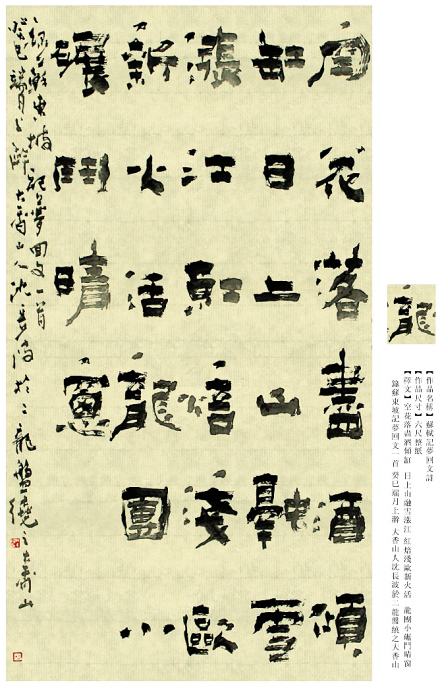 空花落盡酒傾
缸日上山融雪
漲江紅焙淺甌
新火活龍團小
碾鬥晴窗
錄蘇東坡記夢回文一首
癸巳端月上澣大香山人沈長波於二龍盤繞之大香山
龍
【作品名稱】蘇軾記夢回文詩
【作品尺寸】六尺整紙
【釋文】空花落盡酒傾缸 日上山融雪漲江 紅焙淺甌新火活 龍團小碾鬥晴窗
錄蘇東坡記夢回文一首 癸巳端月上澣 大香山人沈長波於二龍盤繞之大香山